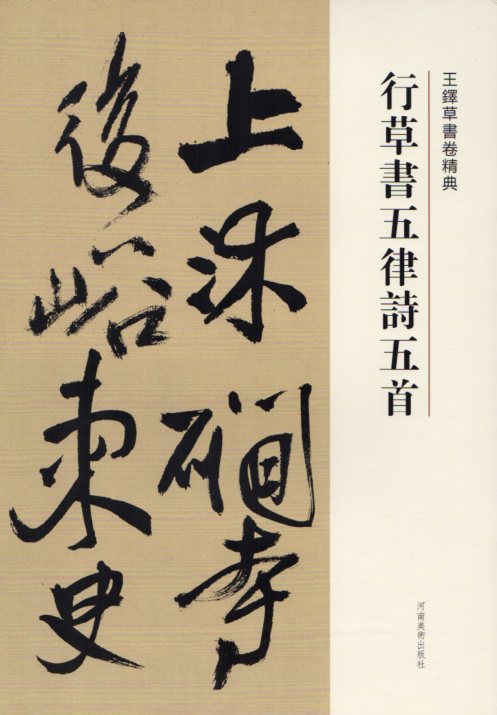 王鐸草書卷精典
行草書五律詩五首
上沐礀寺
後峪東叟
河南美術出版社